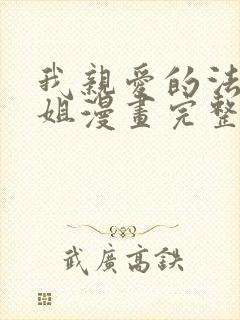 我親愛的法
姐漫畫完整
武廣高鉄